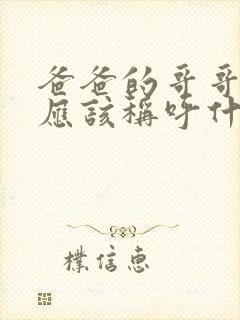 爸爸的哥哥
應該稱呼什
樸信惠